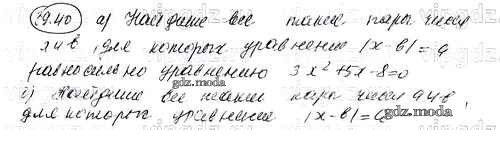 39.40 а) Найдите все такие пары чисел
а и в, для которых уравнение |x-в|=a
равносильно уравнению 3x²+5x-8=0
б) Найдите все такие пары чисел а и в,
для которых уравнение |x-в|=a
gdz.moda
gdz.moda
gdz.moda